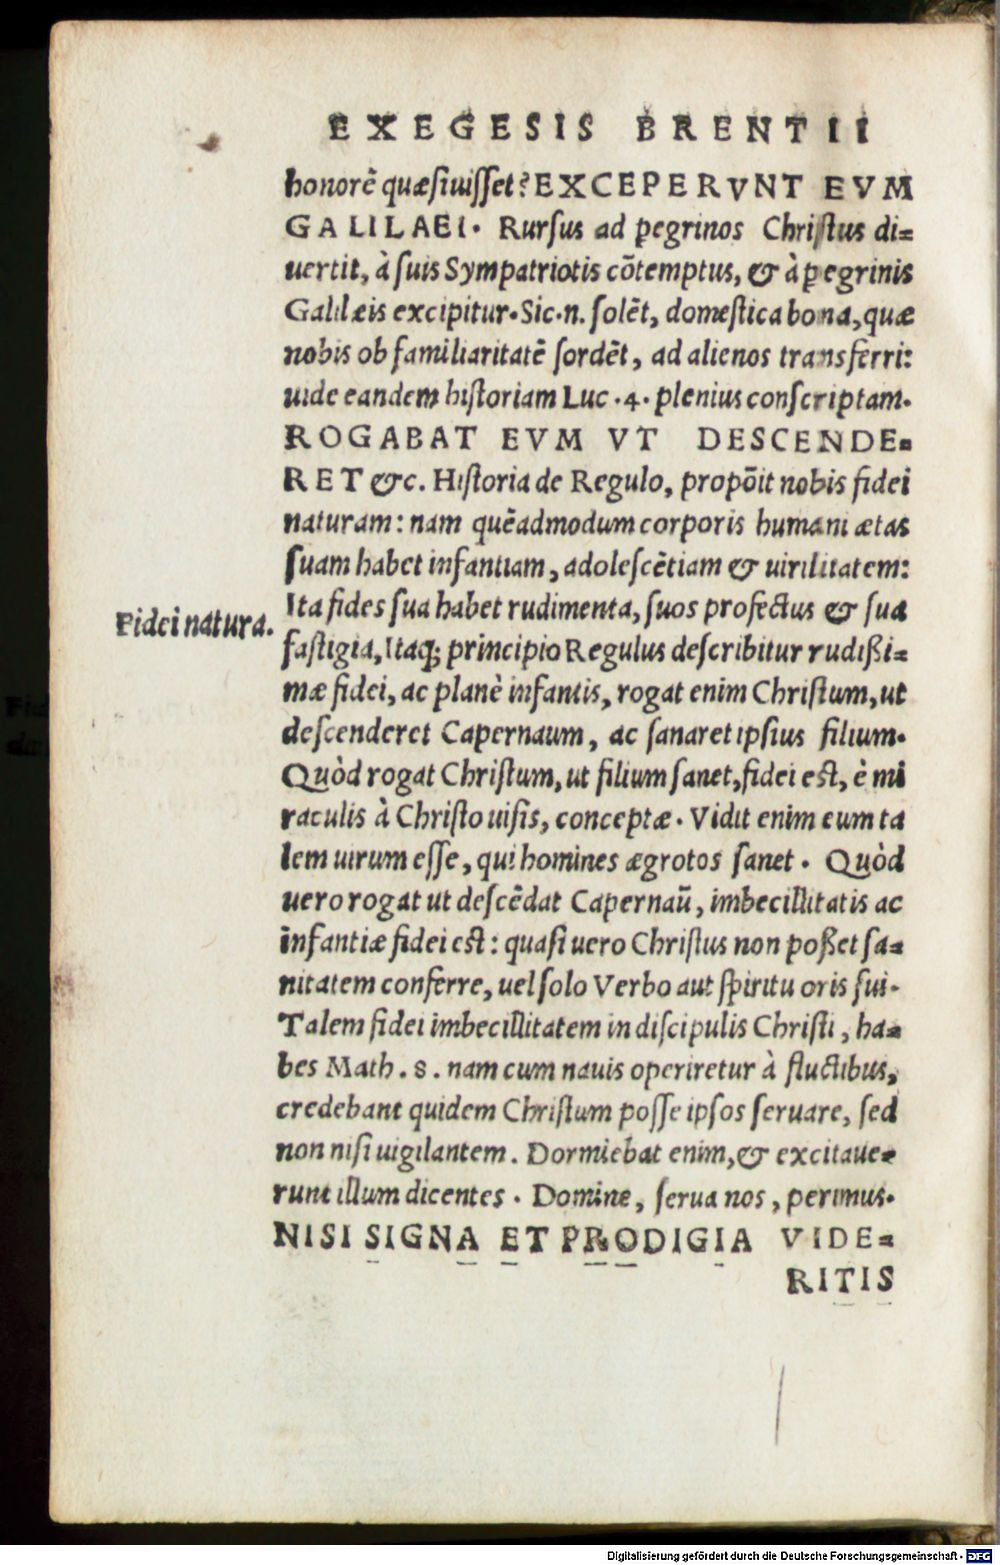 EXEGESIS BRENTII
honorẽ quæſiuiſſet? EXCEPERVNT EVM
GALILAEI. Rurſus ad ꝑegrinos Chriſtus di=
uertit, à ſuis Sympatriotis cõtemptus, & à ꝑegrinis
Galilæis excipitur. Sic .n. ſolẽt, domeſtica bona, quæ
nobis ob familiaritatẽ ſordẽt, ad alienos transferri:
uide eandem hiſtoriam Luc .4. plenius conſcriptam.
ROGABAT EVM VT DESCENDE=
RET &c. Hiſtoria de Regulo, propõit nobis fidei
naturam: nam quẽadmodum corporis humani ætas
ſuam habet infantiam, adoleſcẽtiam & uirilitatem:
Ita fides ſua habet rudimenta, ſuos profectus & ſua
Fidei natura.
faſtigia, Itaq; principio Regulus deſcribitur rudißi=
mæ fidei, ac planè infantis, rogat enim Chriſtum, ut
deſcenderet Capernaum, ac ſanaret ipſius filium.
Quòd rogat Chriſtum, ut filium ſanet, fidei est, è mi
raculis à Chriſto uiſis, conceptæ. Vidit enim eum ta
lem uirum eſſe, qui homines ægrotos ſanet. Quòd
uero rogat ut deſcẽdat Capernaũ, imbecillitatis ac
infantiæ fidei est: quaſi uero Chriſtus non poßet ſa=
nitatem conferre, uel ſolo Verbo aut ſpiritu oris ſui.
Talem fidei imbecillitatem in diſcipulis Chriſti, ha=
bes Math. 8. nam cum nauis operiretur à fluctibus,
credebant quidem Chriſtum poſſe ipſos ſeruare, ſed
non niſi uigilantem. Dormiebat enim, & excitaue=
runt illum dicentes. Domine, ſerua nos, perimus.
NISI SIGNA ET PRODIGIA VIDE=
RITIS
Digitalisierung gefördert durch die Deutsche Forschungsgemeinschaft - DFG